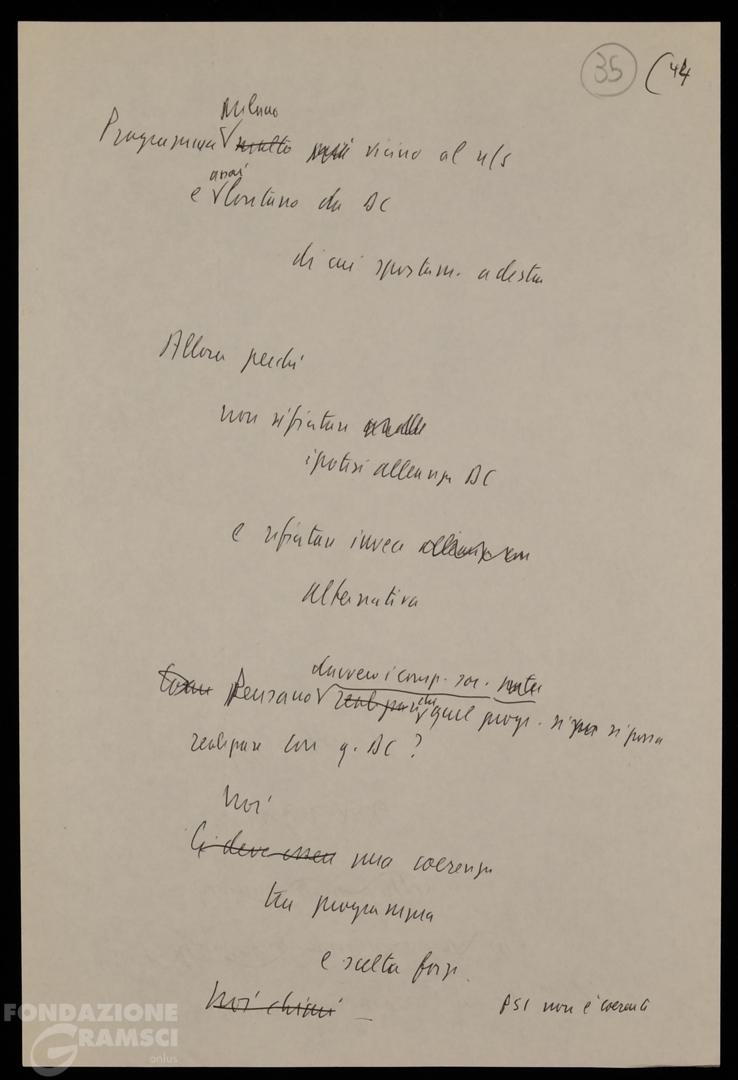 35 (44
Milano
Programma molto più vicino al n/s
assai
e lontano da DC
di cui spostam. a destra
Allora perché
non rifiutare
ipotesi alleanza DC
e rifiutare invece
alternativa
davvero i comp. soc.
Pensano realizzare che quel progr. si possa
realizzare con q. DC?
Noi
Ci deve essere una coerenza
tra programma
e scelta forze
Noi chiami
PSI non è coerente
FONDAZIONE
GRAMSCI
onlus